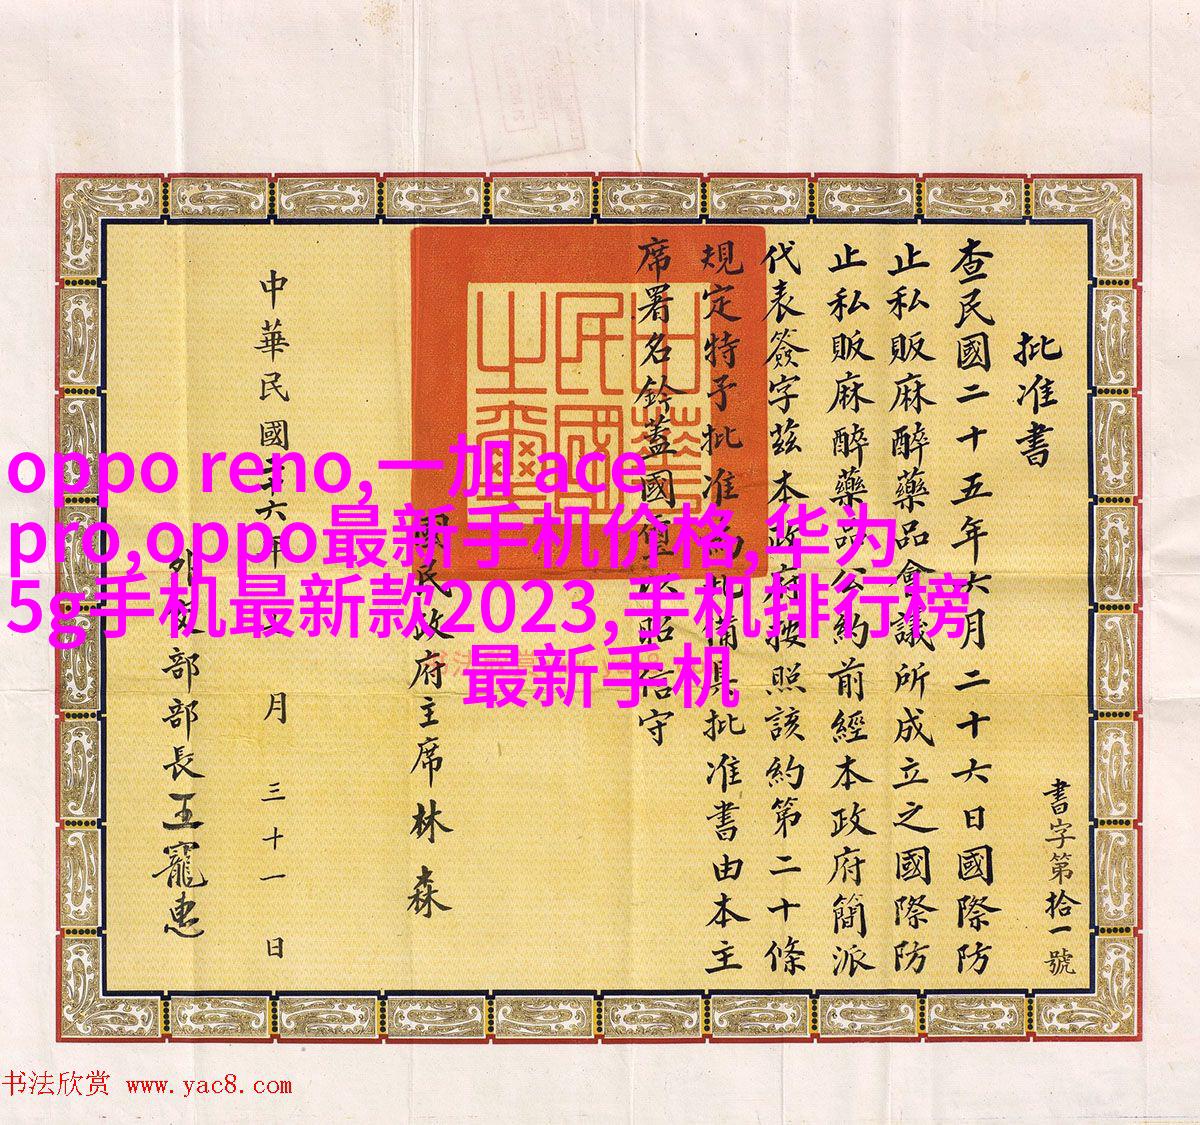 oppo reno, 一加 ace
pro,oppo最新手机价格,华为
5g手机最新款2023,手机排行榜
最新手机
書字第拾一號
批准書
查民國二十五年六月二十六日國際防
止私販麻醉藥品會議所成立之國際防
止私販麻醉藥品公約前經本政府簡派
代表簽字茲本政府按照該約第二十條
規定特予批准為此備具批准書由本主
席署名鈐蓋國璽以昭信守
中華
民國
之璽
國民政府主席林森
中華民國二十六年 月三十一日
外交部部長王寵惠
书法欣赏 www.yac8.com